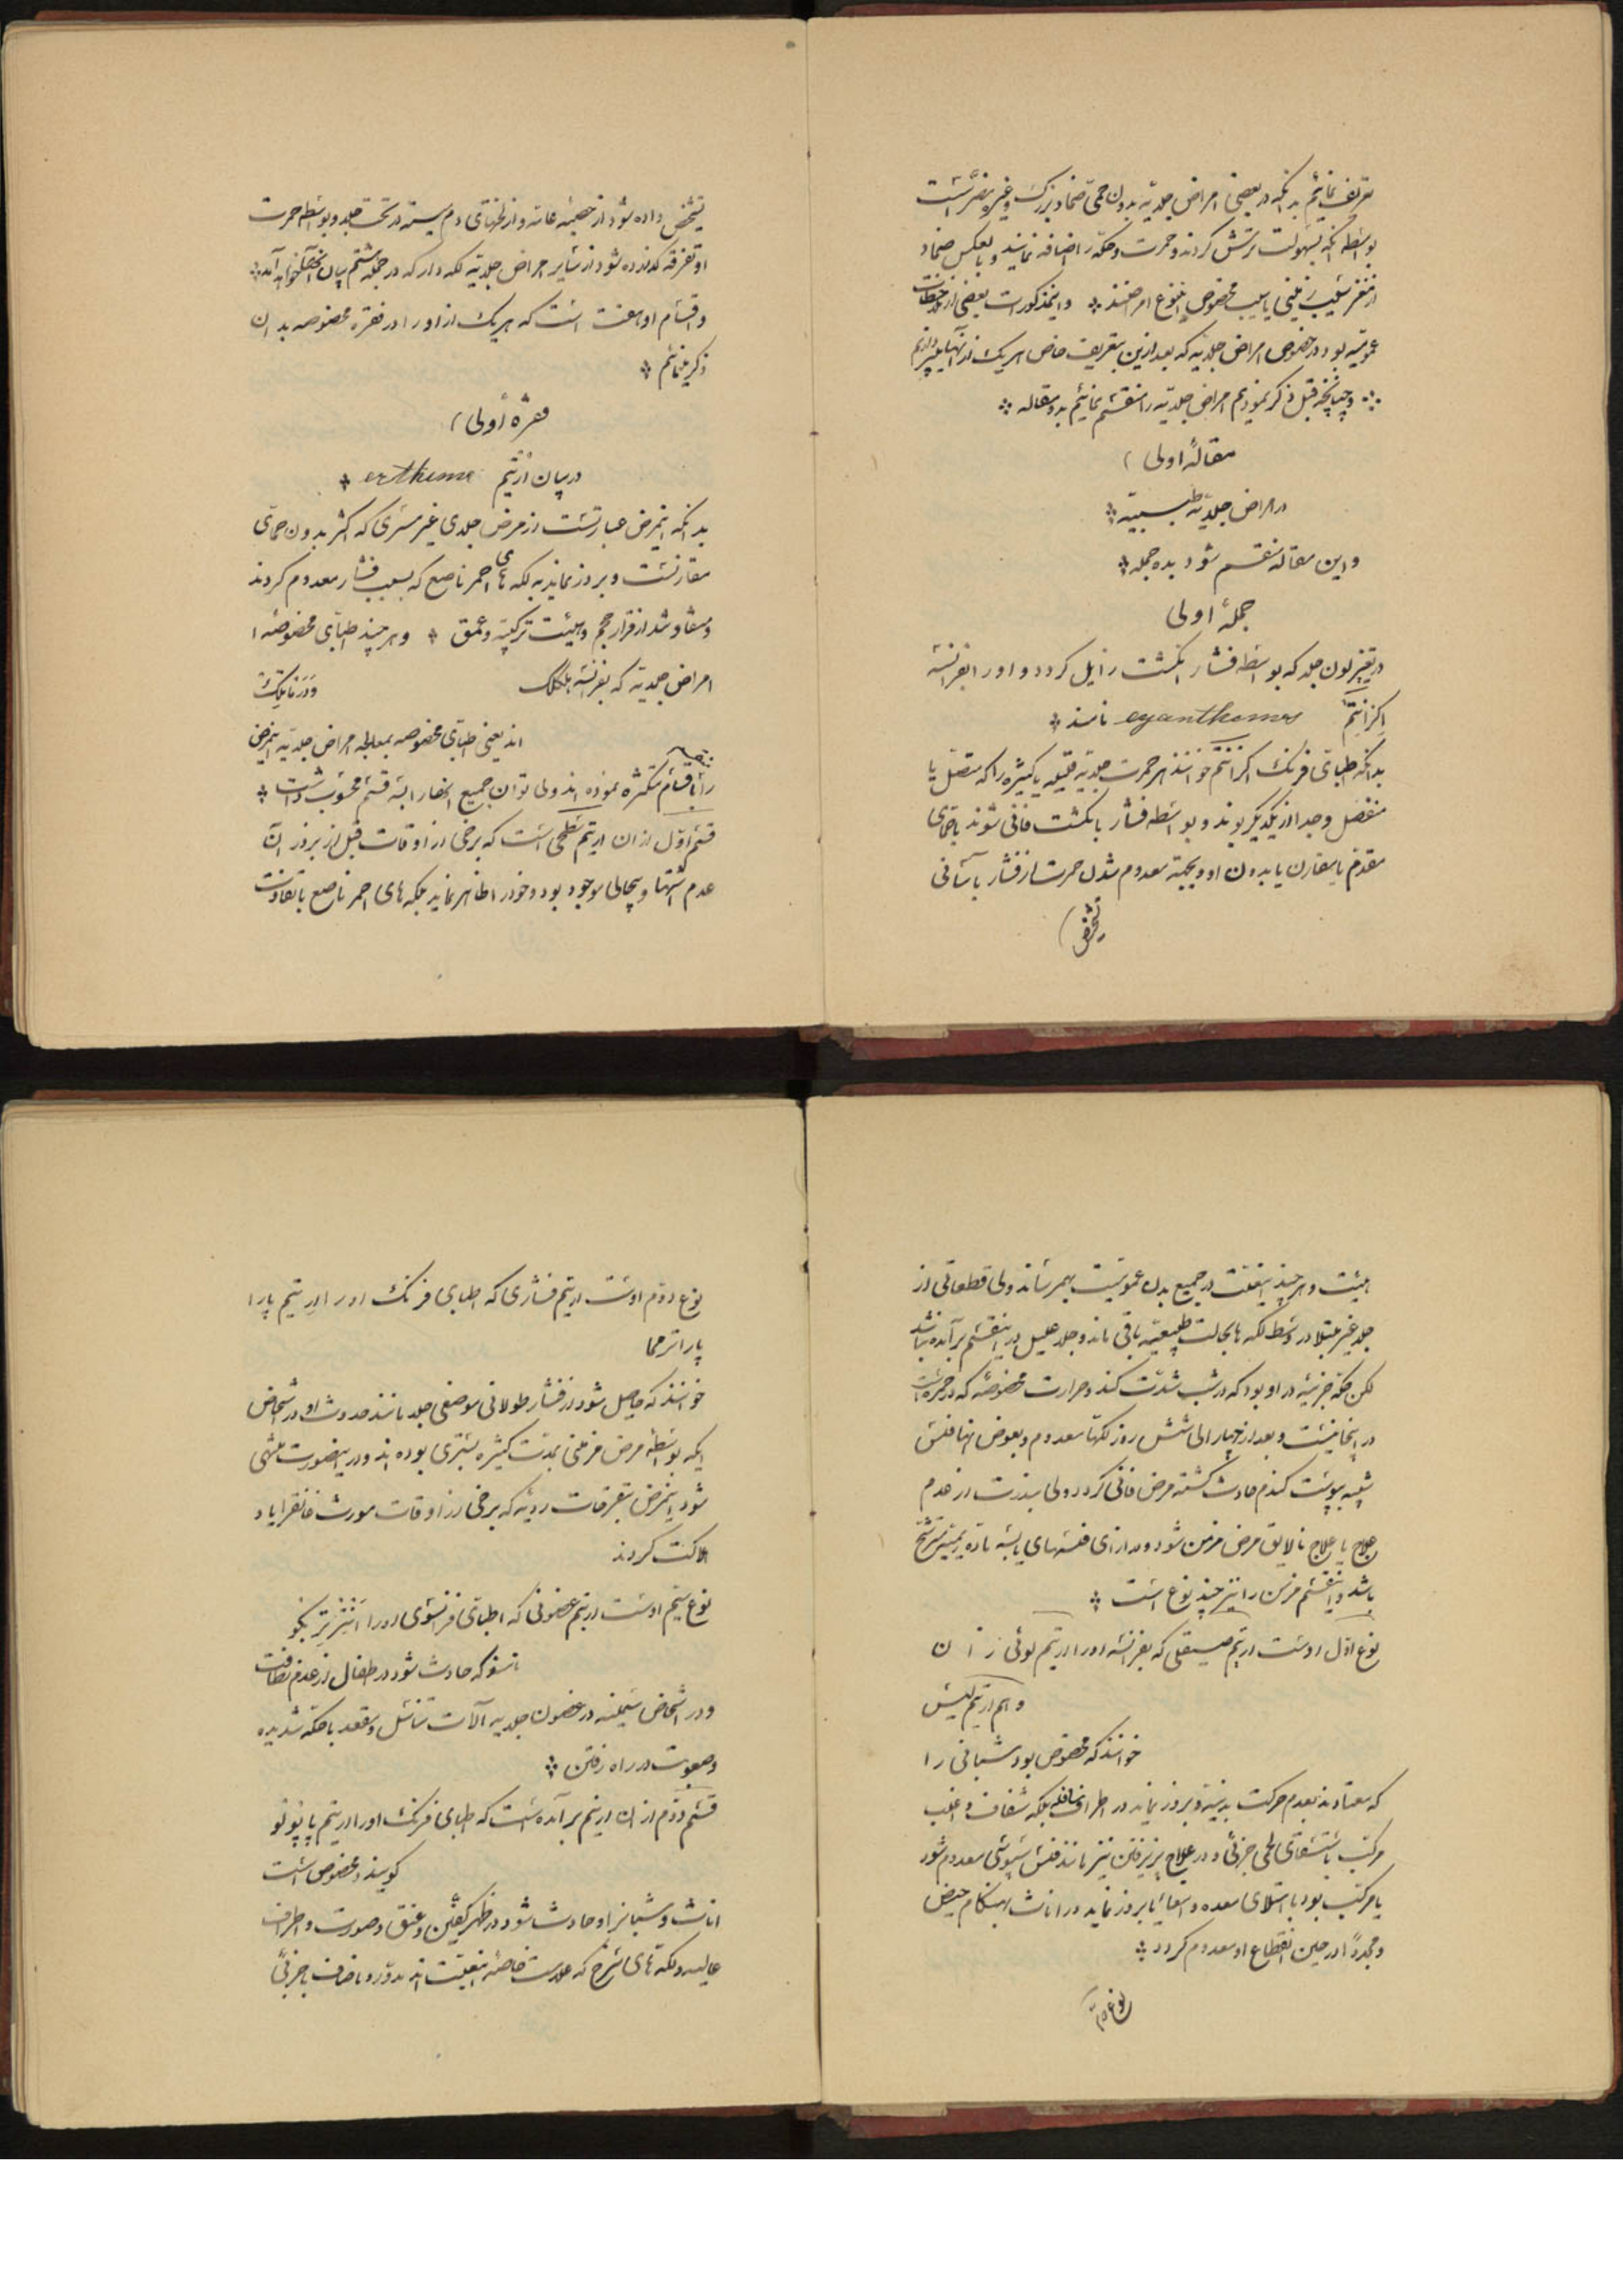 تعریف نمائیم بدانکه در بعضی امراض جلدیه بدون حمی ضماد بزرک و غیره مضر است
بواسطه آنکه بسهولت ترشش کردند و حمرت و حکه را اضافه نمایند و بالعکس ضماد
از مخصوص اینوع امراضند و اینمذکورات بعضی از
عمومیه بود در خصوص امراض جلدیه که بعد ازین بتعریف خاص هریک از آنها
و چنانچه قبل ذکر نمودیم امراض جلدیه را منقسم نمائیم بدو مقاله
مقالهٔ اولی
در امراض جلدیه طبیبیه
و این مقاله منقسم شود بده جمله
جملهٔ اولی
در تغییر لون جلد که بواسطه فشار انگشت زایل کردد و او را بفرانسه
اکزانتم eyanthemes نامند
بدانکه اطبای فرنک اکزانتم خوانند هر حمرت جلدیه قلیله یا کثیره را که متصل یا
منفصل و جدا از یکدیگر بوند و بواسطه فشار بانگشت فانی شوند با حمای
مقدم یا مقارن یا بدون او و بجهة معدوم شدن حمرت از فشار بآسانی
تشخیص
تشخیص داده شود از حصبه عامه و از لخهای دم بسته در تحت جلد و بواسطه حمرت
او تفرقه کرده شود از سایر امراض جلدیه لکه دار که در جمله هشتم بیان خواهد آمد
و اقسام او هفت است که هریک از او را در فقره مخصوصه بدان
ذکر نمائیم
فقره اولی
در بیان ارتیم ertheme
بدانکه اینمرض عبارتست از مرض جلدی غیر مسری که اکثر بدون حمای
مقارنست و بروز نماید به لکه های احمر ناصع که بسبب فشار معدوم کردند
و متفاوتند از قرار حجم و هیئت ترکیبیه و عمق و هر چند اطبای مخصوصهٔ
امراض جلدیه که بفرانسه
اند یعنی اطبای مخصوصه بمعالجه امراض جلدیه اینمرض
را باقسام متکثره نموده اند ولی توان جمیع آنها را بسه قسم محسوب داشت
قسم اول از آن اریتم سطحی است که برخی از اوقات قبل از بروز آن
عدم اشتها و بیحالی موجود بود و خود را ظاهر نماید بلکه های احمر ناصع با تفاوت
هیئت و هر چند اینعلت در جمیع بدن عمومیت بهمرساند ولی قطعاتی از
جلد غیر مبتلا در وسط لکه ها بحالت طبیعیه باقی ماند و جلد علیل در اینقسم برآمده نباشد
لکن حکه جزئیه در او بود که در شب شدت کند و حرارت مخصوصه که در حمره است
در اینجا نیست و بعد از چهار الی شش روز لکها معدوم و بعوض آنها فلس
شبیه بپوست کندم حادث گشته مرض فانی کردد ولی بندرت از عدم
علاج یا علاج نالایق مرض مزمن شود و دارای فلسهای یابسه
باشد و اینقسم مزمن را نیز چند نوع است
نوع اول اوست اریتم صیقلی که بفرانسه او را اریتم لوئی زان
و هم اریتم لیس
خوانند که مخصوص بود شبانی را
که معتادند بعدم حرکت بدنیه و بروز نماید در اطراف سافله بلکه شفاف و اغلب
مرکب باستسقای لحمی جزئی و در علاج پذیرفتن نیز مانند فلس سبوسی معدوم شود
یا مرکب بود بامتلای معده و امعا یا بروز نماید در اناث بهنکام حیض
و مجدداً در حین انقطاع او معدوم کردد
نوع دوم
نوع دوم اوست اریتم فشاری که اطبای فرنک او را اریتیم پارا
پاراتریما
خوانند که حاصل شود از فشار طولانی موضعی جلد مانند حدوث او در اشخاص
آنکه بواسطه مرض مزمنی بمدت کثیره بستری بوده اند و در اینصورت منتهی
شود اینمرض بتقرحات ردیه که برخی از اوقات مورث غانقرایا و
هلاکت کردند
نوع سیم اوست اریتم غضونی که اطبای فرانسوی او را انترتریکو
نامند که حادث شود در اطفال از عدم نظافت
و در اشخاص سمینه در غضون جلدیه آلات تناسل و مقعد با حکه شدیده
و صعوبت در راه رفتن
قسم دوم از آن اریتم برآمده است که اطبای فرنک او را اریتم پاپولو
کویند و مخصوص است
اناث و شبانرا و حادث شود در ظهر کفین و عنق و صورت و اطراف
عالیه و لکه های سرخ که علامت خاصه اینعلت اند مدور و با صاف با جزئی